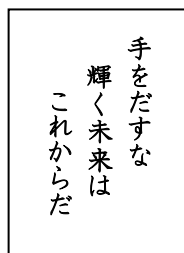 手をだすな
輝く未来は
これからだ